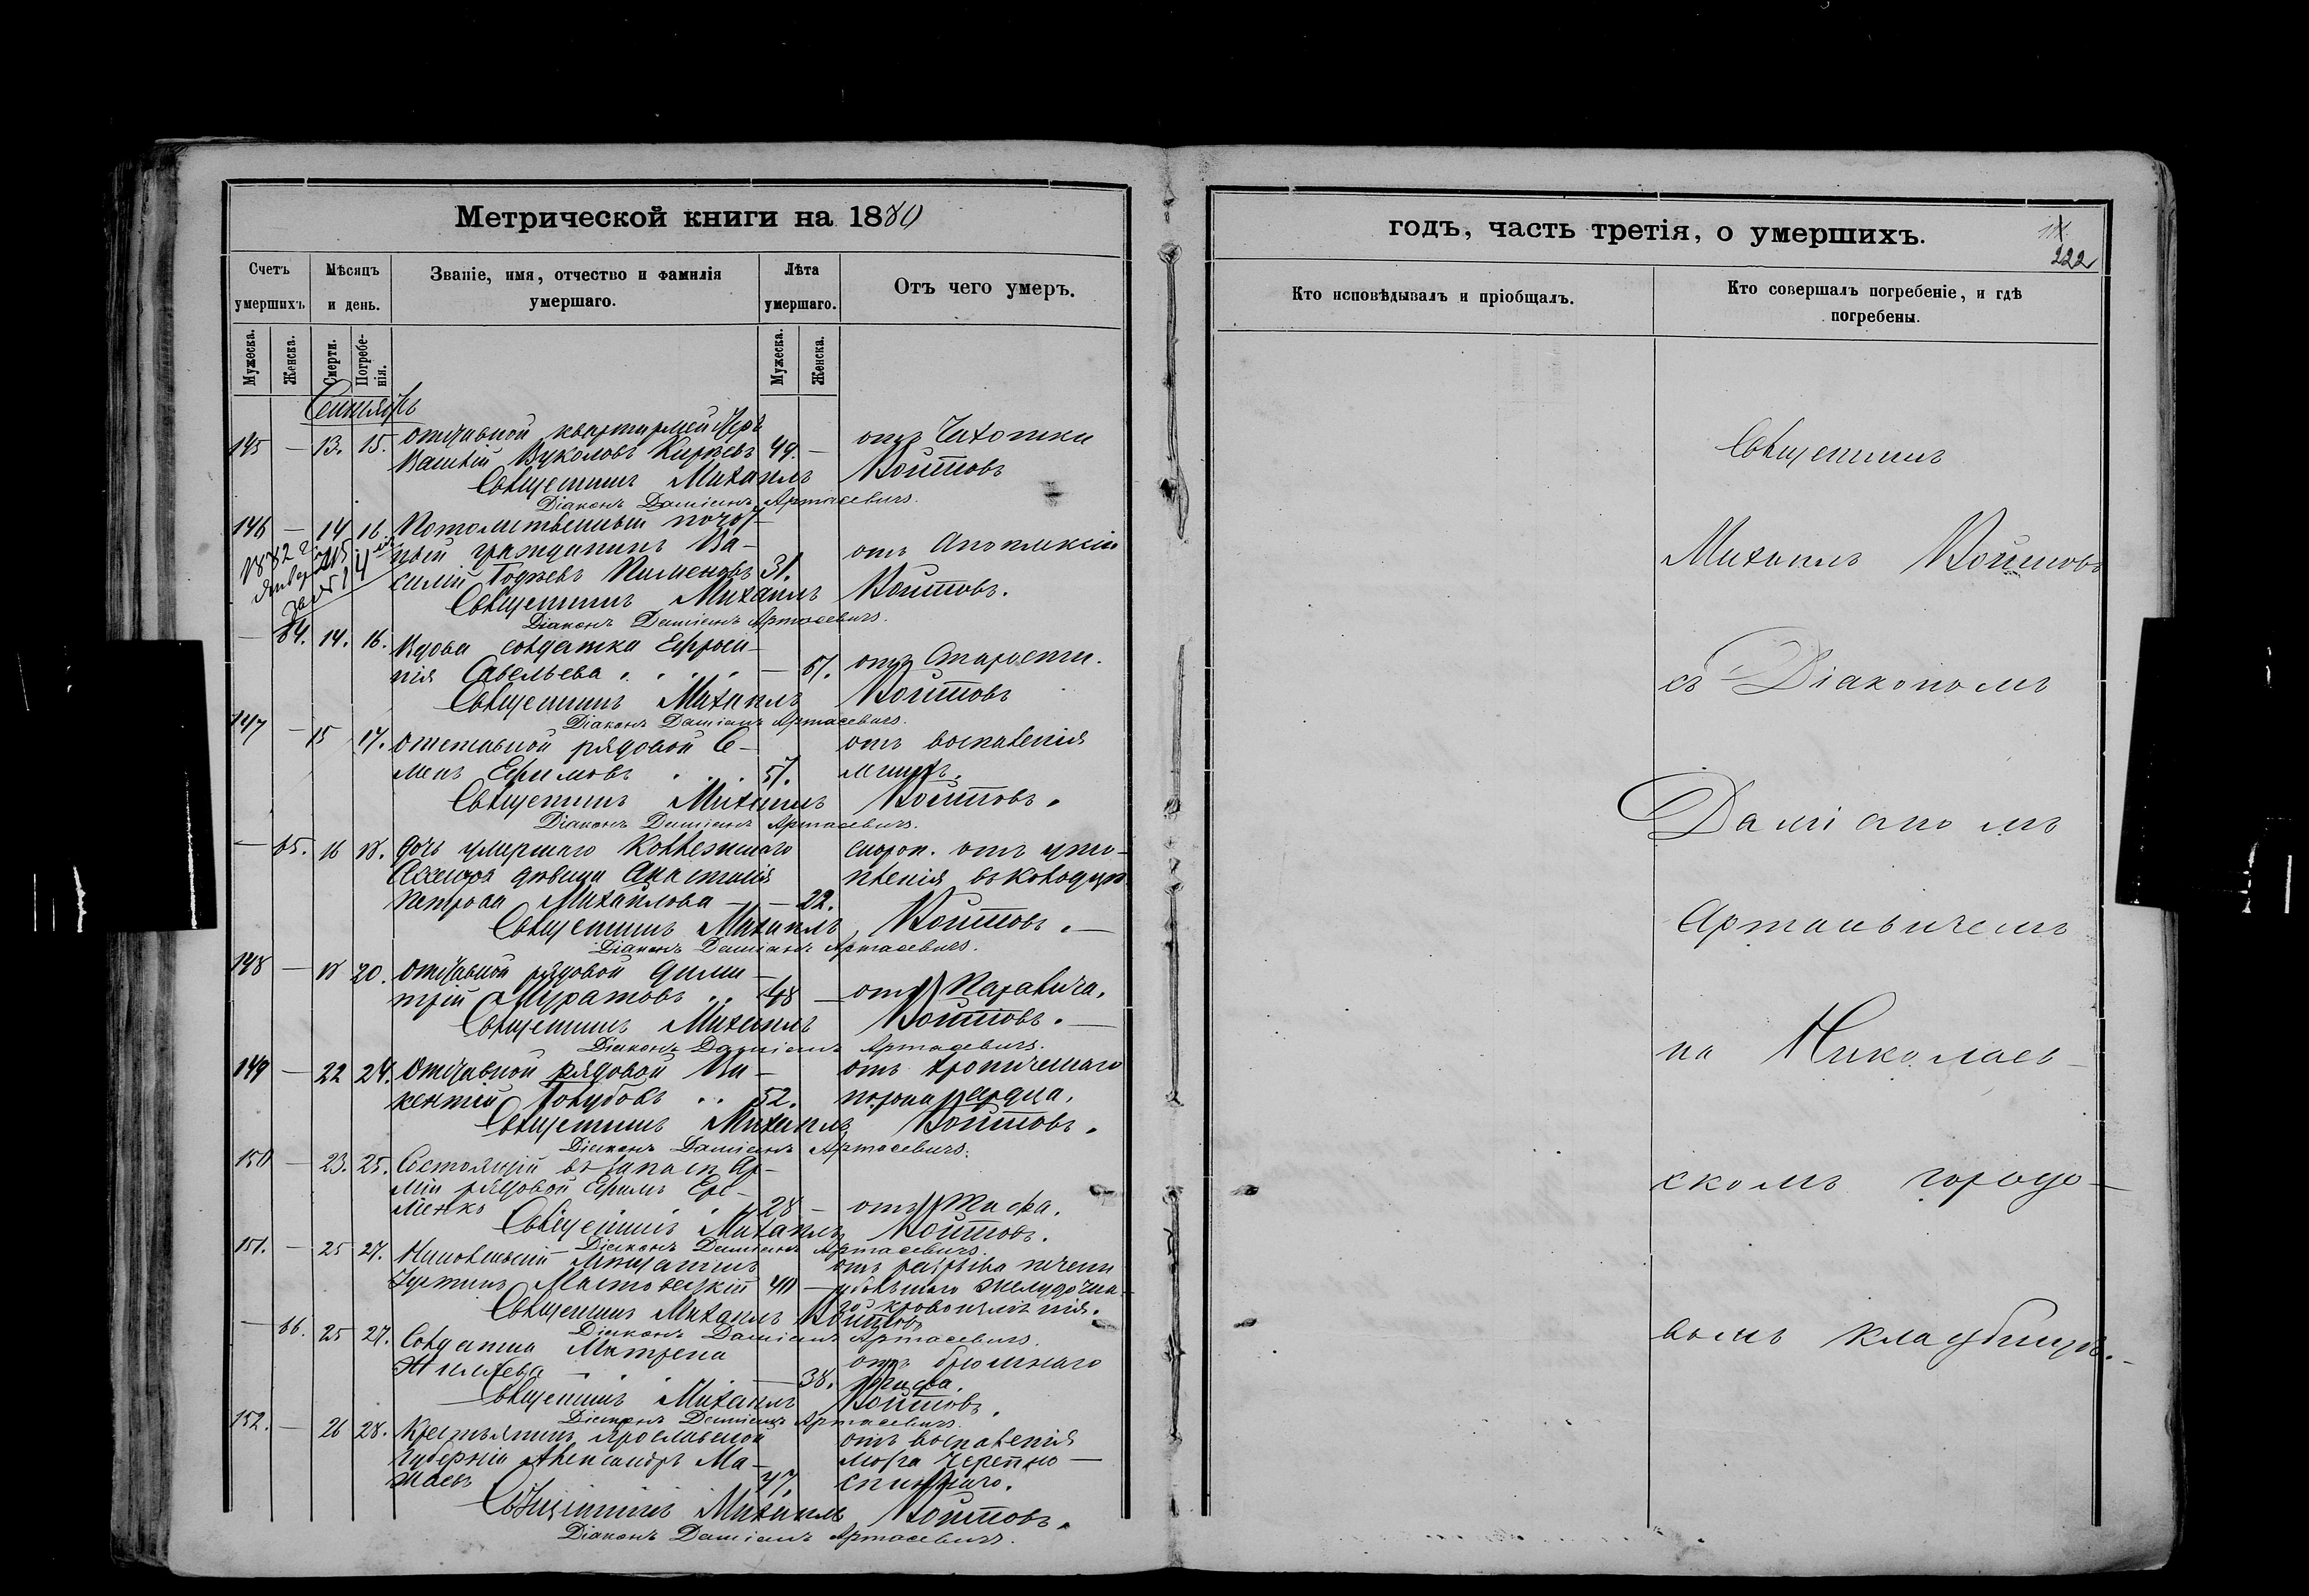 Метрической книги на 1880
Счетъ умершихъ.
Мѣсяцъ и день.
Званіе, имя, отчество и фамилія умершаго.
Лѣта умершаго.
Отъ чего умеръ.
Мужеска.
Женска.
Смерти.
Погребенія.
Мужеска.
Женска.
Сентябрь
145 — 13. 15. Отставной квартирмейстеръ
Василій Вуколовъ Киреевъ 49. — отъ Чахотки
Священникъ Михаилъ Войтовъ
Діаконъ Даміанъ Артасевичъ.
146 — 14 16 Потомственный почот-
ный гражданинъ Ва- отъ Апоплексіи
силій Гордѣевъ Пименовъ 31.
1882 г.
Января 15
Священникъ Михаилъ Войтовъ.
Діаконъ Даміанъ Артасевичъ.
— 64. 14. 16. Вдова солдатка Ефроси-
нія Савельева — 67. отъ Старости.
Священникъ Михаилъ Войтовъ
Діаконъ Даміанъ Артасевичъ.
147 — 15 17. Отставной рядовой Се- отъ воспаленія
менъ Ефимовъ 57. легкихъ.
Священникъ Михаилъ Войтовъ.
Діаконъ Даміанъ Артасевичъ.
— 65. 16 18. Дочь умершаго Коллежскаго скороп. отъ уто-
Ассесора дѣвица Анастасія пленія въ колодцѣ
Петрова Михайлова — — 22.
Священникъ Михаилъ Войтовъ. —
Діаконъ Даміанъ Артасевичъ.
148 — 18 20. Отставной рядовой Дими-
трій Муратовъ 48 — отъ Паралича.
Священникъ Михаилъ Войтовъ. —
Діаконъ Даміанъ Артасевичъ.
149 — 22 24. Отставной рядовой Ви- отъ хроническаго
кентій Голубовъ 52. порока сердца.
Священникъ Михаилъ Войтовъ.
Діаконъ Даміанъ Артасевичъ.
150 — 23. 25. Состоящій въ запасѣ Ар-
міи рядовой Ефимъ Ере-
менко 28 — отъ Тифа.
Священникъ Михаилъ Войтовъ.
Діаконъ Даміанъ Артасевичъ.
151. — 25 27. мѣщанинъ отъ разрыва печени
Устинъ 40 — желудочна-
го кровотеченія.
Священникъ Михаилъ Войтовъ
Діаконъ Даміанъ Артасевичъ.
— 66. 25 27. Солдатка Матрена отъ брюшнаго
— 38. тифа.
Священникъ Михаилъ Войтовъ.
Діаконъ Даміанъ Артасевичъ.
152. — 26 28. Крестьянинъ Ярославской отъ воспаленія
губерніи Александръ Ма- мозга черепно —
шаевъ 47. спиннаго.
Священникъ Михаилъ Войтовъ.
Діаконъ Даміанъ Артасевичъ.
годъ, часть третія, о умершихъ.
222
Кто исповѣдывалъ и пріобщалъ.
Кто совершалъ погребеніе, и гдѣ погребены.
Священникъ
Михаилъ Войтовъ
съ Діакономъ
Даміаномъ
Артасевичемъ
на Николаев-
скомъ городо-
вомъ кладбищѣ. —